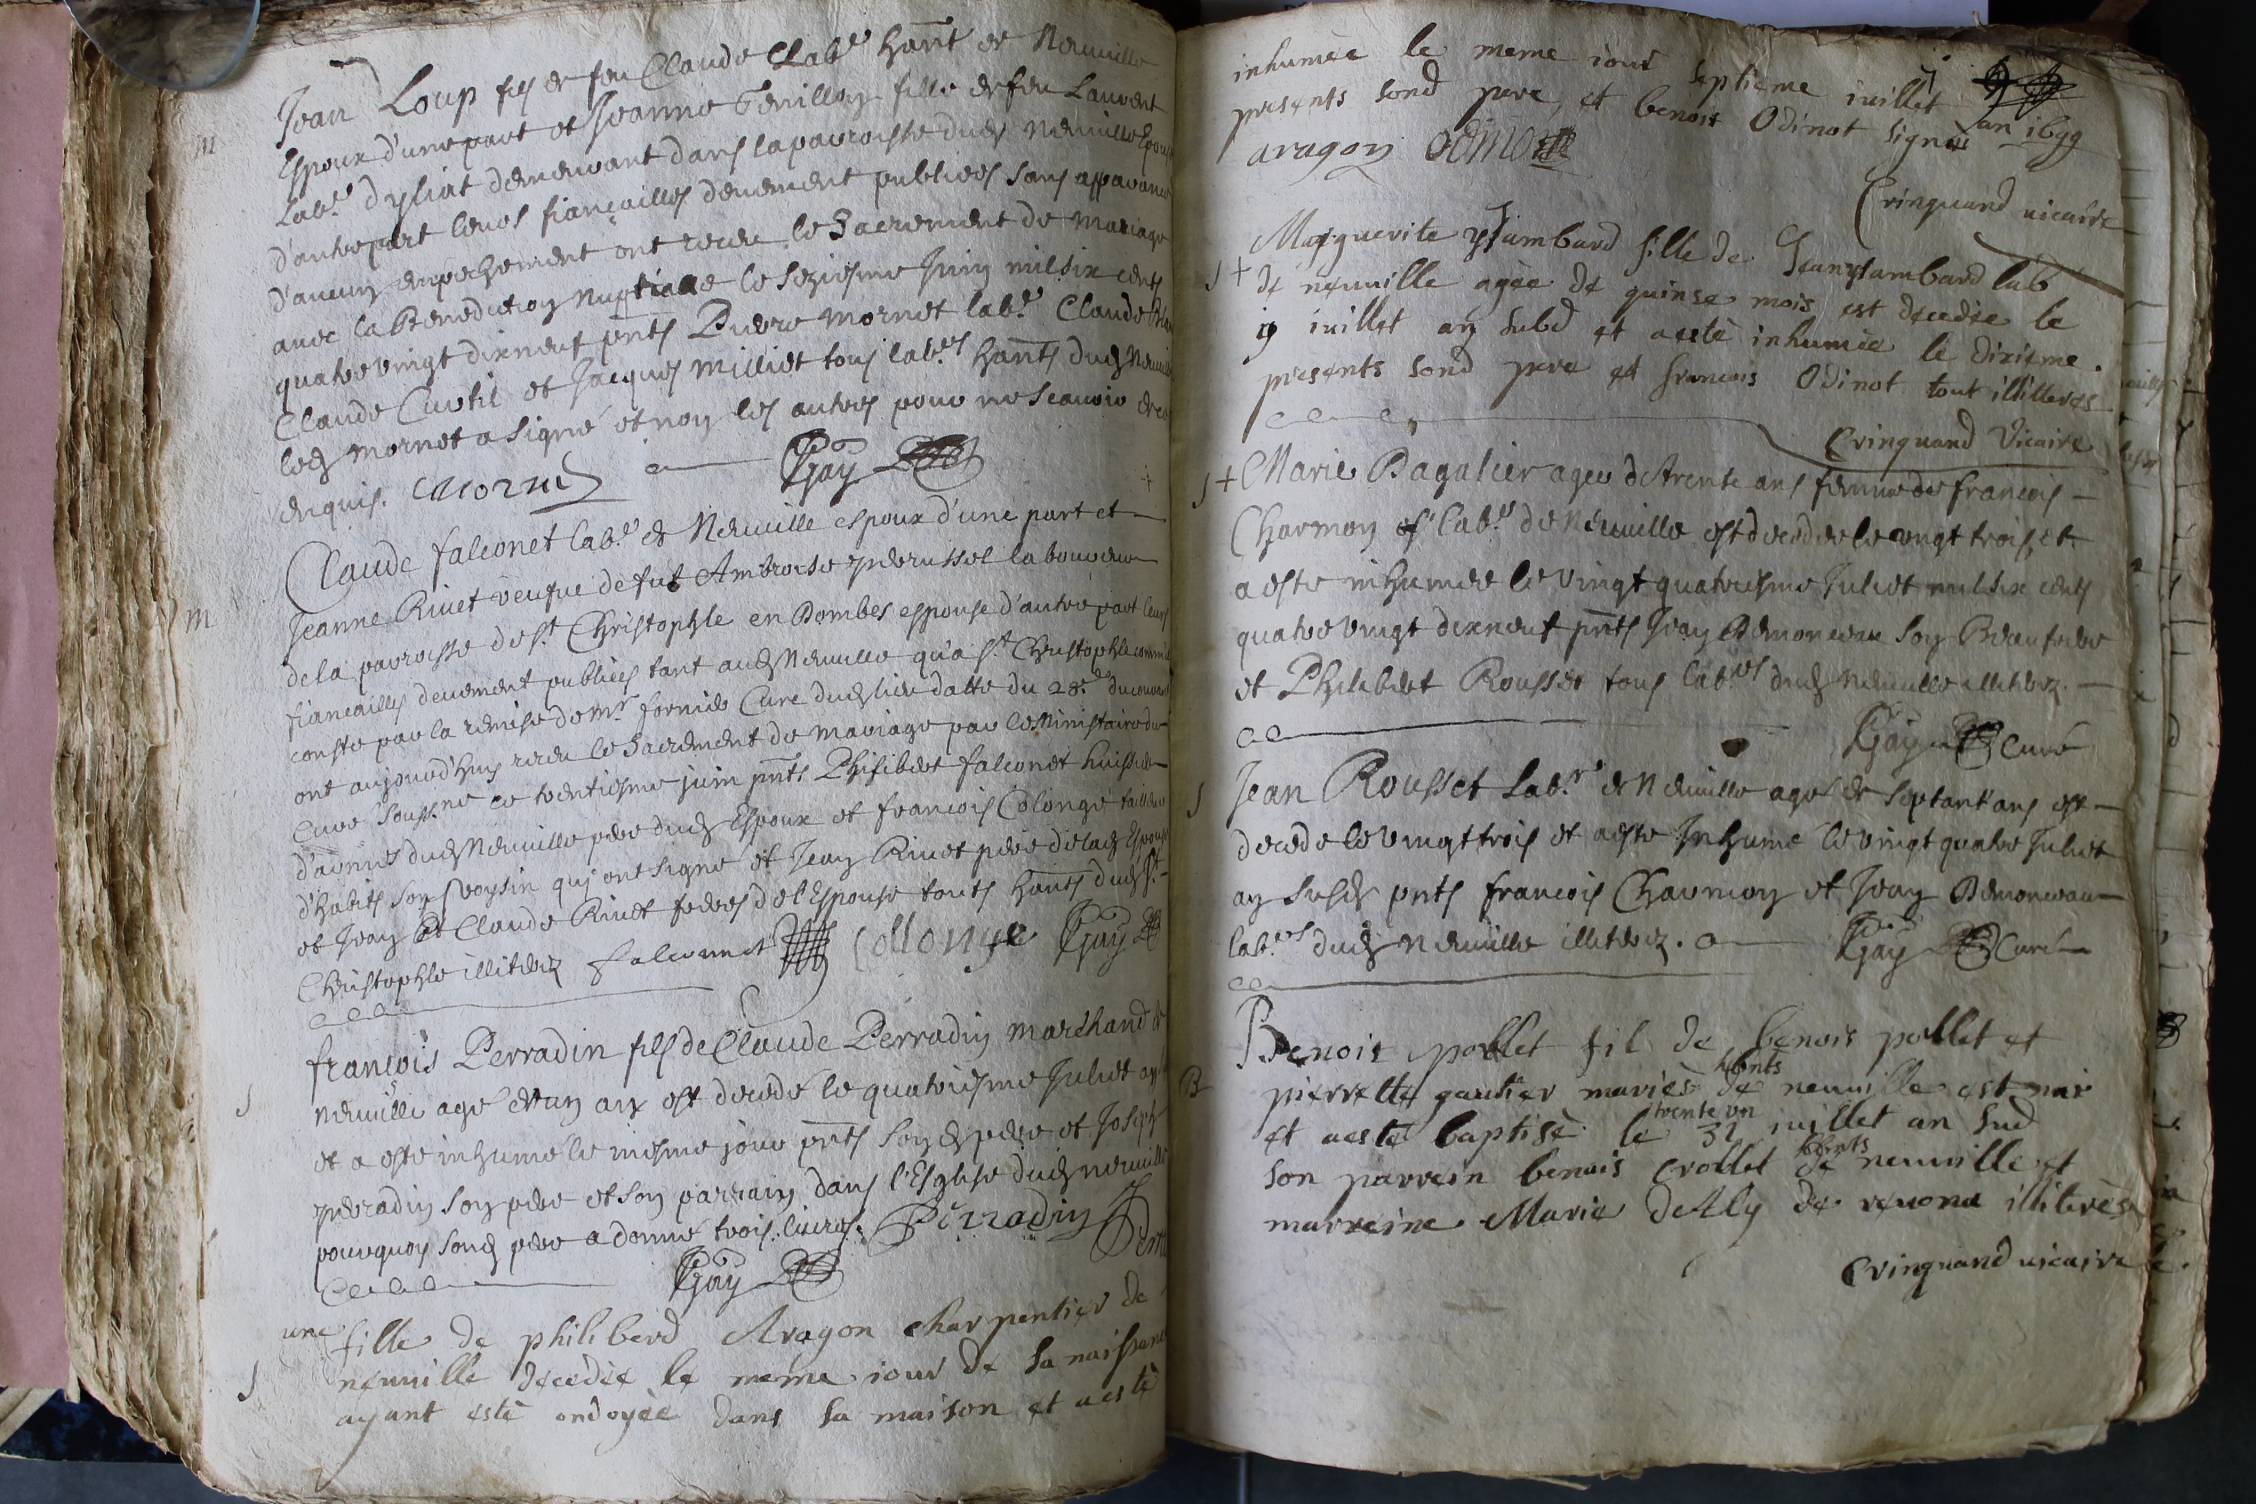 Jean Loup fils de feu Claude Lab.r hant de Neuville
Espoux d'une part et Jeanne fille de feu Laurent
Lab.r d'Illiat demeurant dans la parroisse dud Neuville Epouse
d'autre part leurs fiançailles deuement publiees sans apparance
d'aucun empechement ont receu le Sacrement de Mariage
avec la Benediction Nuptialle le seziesme Juin mil six cents
quatre vingt dixneuf pnts Pierre Mornet lab.r Claude
Claude Curtil et Jacques Milliet tous lab.rs hants dud Neuville
led Mornet a signé et non les autres pour ne scauoir de ce
enquis. Mornet Gay
m
Claude falconet lab.r de Neuville espoux d'une part et
Jeanne Riuet veufue de fut Ambroise perussel laboureur
de la parroisse de st Christophle en Dombes espouse d'autre part leurs
fiancailles deuement publiées tant aud Neuville qu'a st Christophle comme
conste par la remise de mr fornier Curé dud lieu datte du 28e du courant
ont aujourd'huy receu le Sacrement de mariage par le Ministaire du
Curé souss.né ce trentiesme juin pnts Philibert falconet huissier
d'armes dud Neuville pere dud Espoux et francois Colonge tailleur
d'habits son voysin qui ont signé et Jean Riuet pere de lad Epouse
et Jean et Claude Riuet freres de l'Espouse touts hants dud st
Christophle illiterez falconnet Collonge Gay
m
françois Perradin fils de Claude Perradin marchand de
Neuville agé d'un an est decedé le quatriesme Juliet an
et a esté inhumé le mesme jour pnts son d pere et Joseph
perradin son pere et son parrain dans l'Esglise dud neuville
pourquoy sond pere a donné trois liures. Perradin
Gay
s
une fille de philiberd Aragon charpentier de
neuuille decedée le meme iour de sa naissance
ayant esté ondoyée dans sa maison et a esté
s
inhumée le meme iour septieme iuillet
presents sond pere, et benoit Odinot signés an 1699
aragon odinot
Cringuand uicaire
s + Marguerite ysambard fille de Jean ysambard lab
de neuuille agée de quinse mois est decedée le
9 iuillet an susd et a esté inhumée le dixieme.
presents sond pere et francois Odinot tout illiterés
Cringuand Vicaire
s + Marie Bagulier agee de trente ans femme de francois
Charmon lab.r de Neuville est decedee le vingt trois, et
a este inhumee le vingt quatriesme Juliet mil six cents
quatre vingt dixneuf pnts Jean Demonceau son Beaufrere
et Philibert Rousset tous lab.rs dud Neuville illiterez.
Gay curé
s Jean Rousset Lab.r de Neuville agé de septant'ans est
decedé le vingt trois et a esté Inhumé le vingt quatre Juliet
an susd pnts francois Charmon et Jean Demonceau
lab.rs dud Neuville illiterez. Gay Curé
Benoit pollet fil de benois pollet et
pierrette gautier mariés hbnts de neuuille est nai
B
et a esté baptisé le trente vn 31 iuillet an sud
son parrein benois crollet hbnts de neuuille et
marreine Marie deAly de renone illiterés
Cringuand uicaire